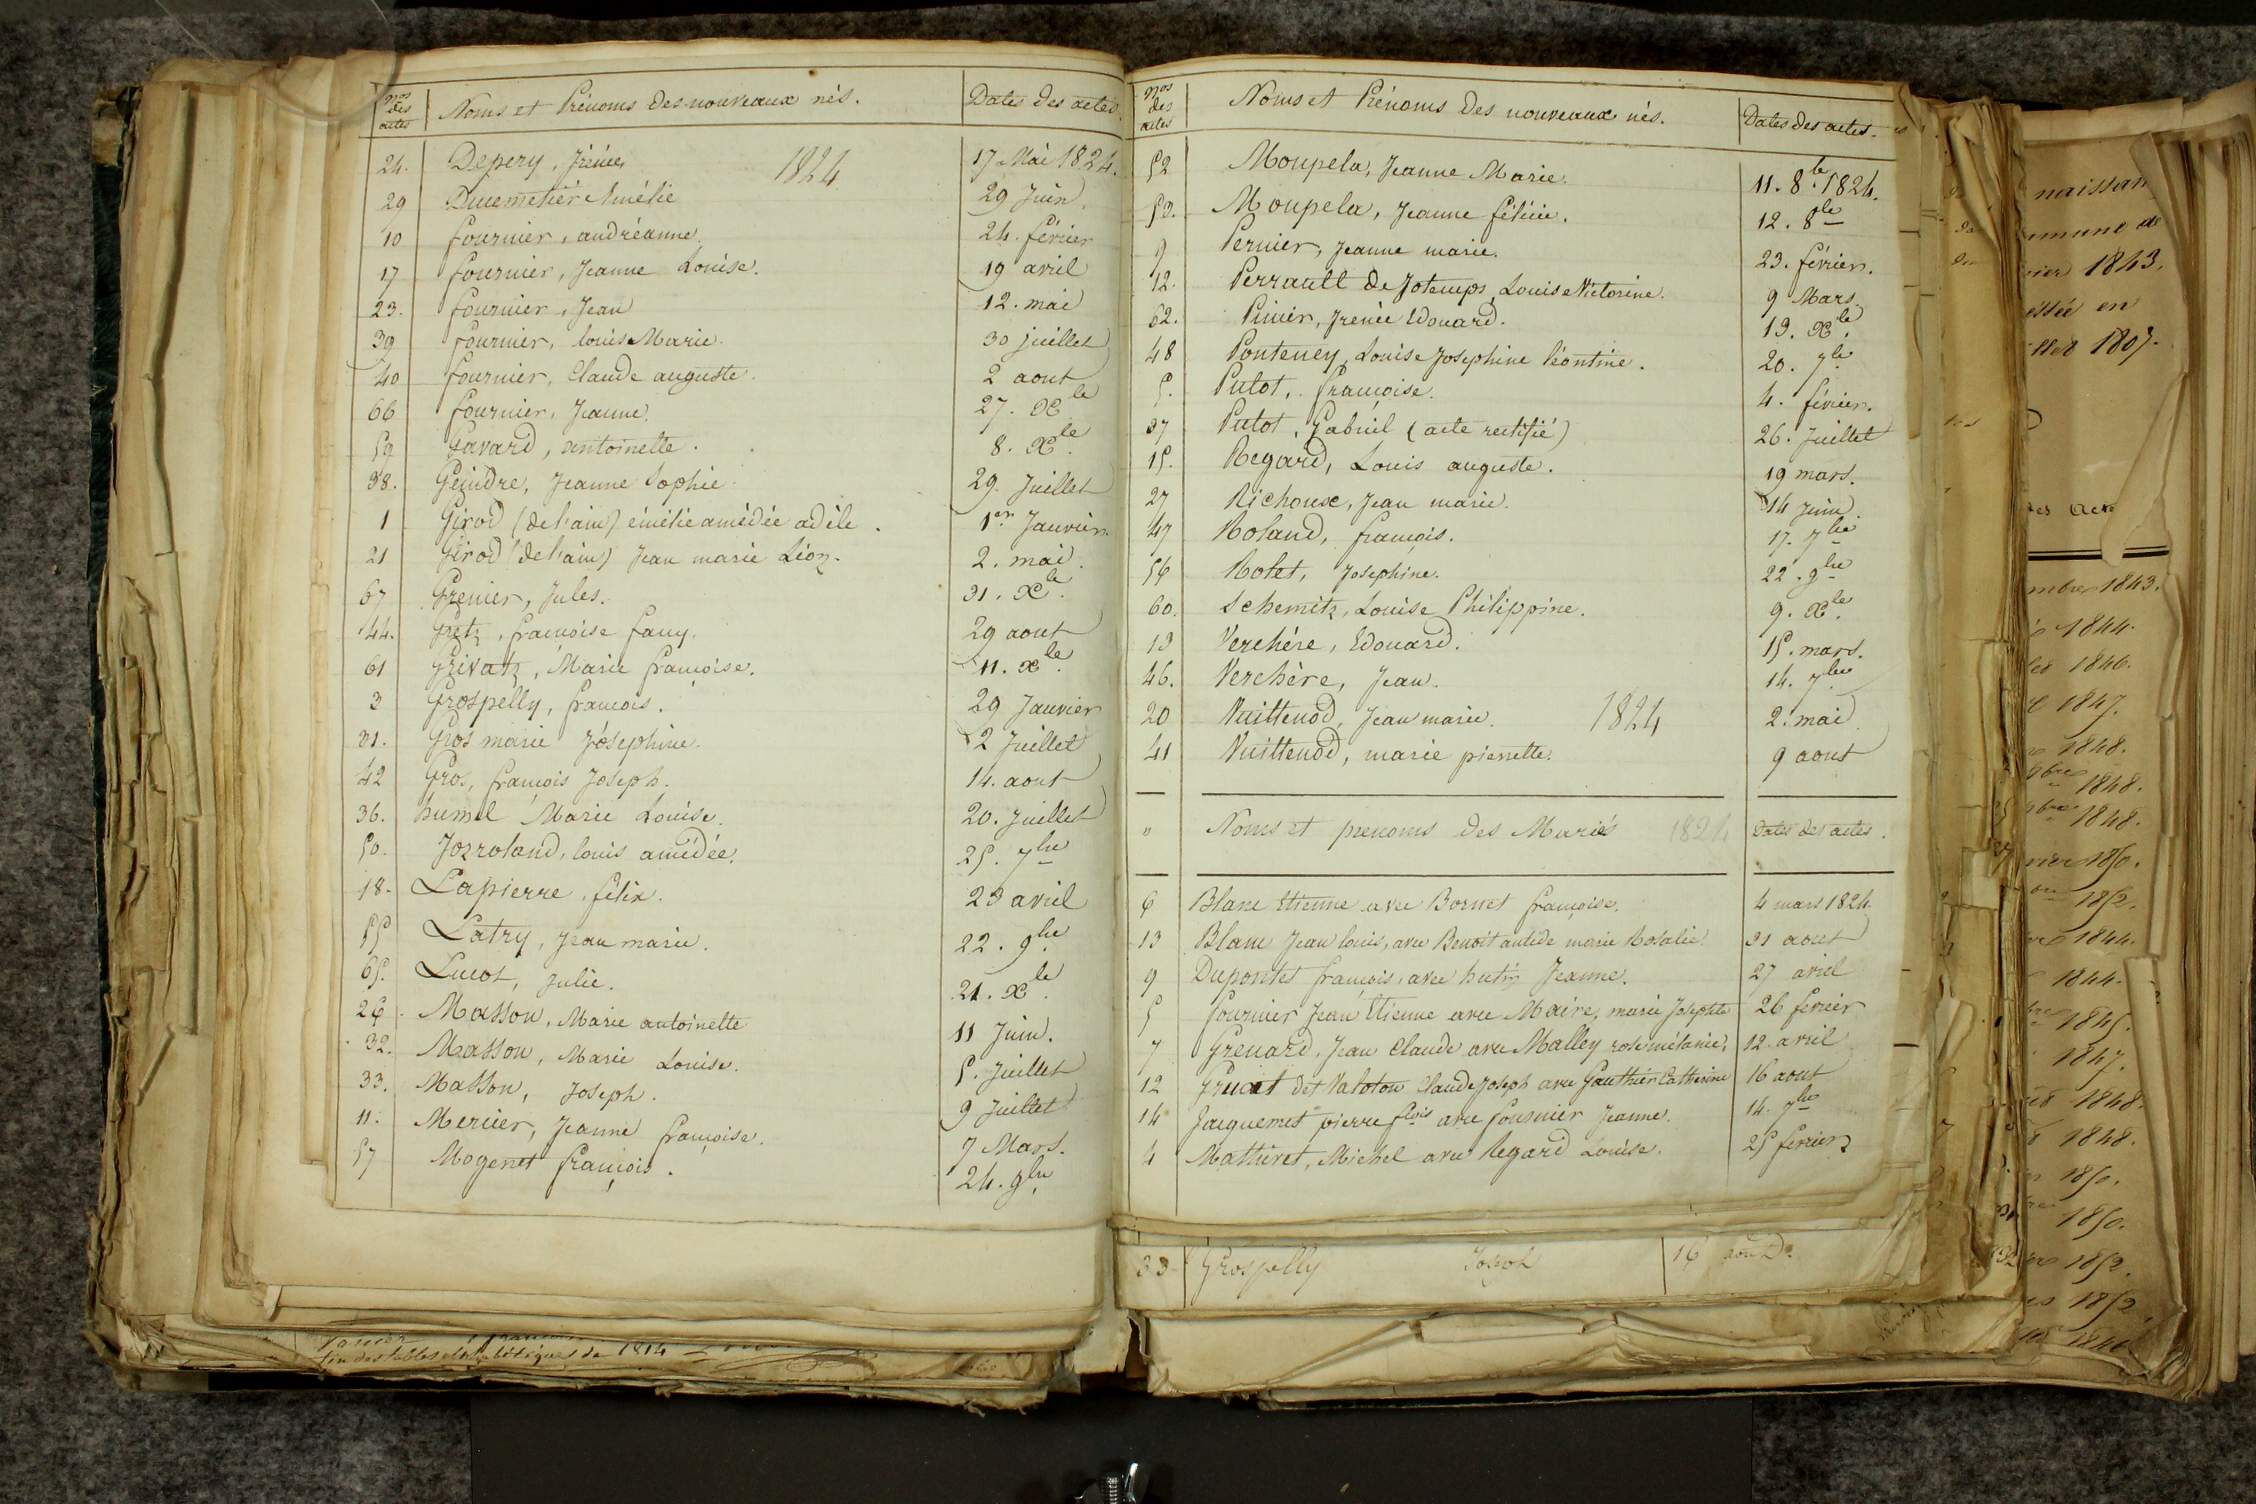 Nos des actes | Noms et Prénoms des nouveaux nés. | Dates des actes.
24. Depery, Irénée 1824 17 Mai 1824.
29 Ducemetier Amélie 29 Juin.
10 fournier, andréanne. 24. février
17 fournier, Jeanne Louise. 19 avril
23. fournier, Jean 12. mai
39 fournier, louis Marie. 30 juillet
40 fournier, Claude auguste. 2 aout
66 fournier, Jeanne. 27. Xbe
59 Gavard, antoinette. 8. Xbe.
38. Geindre, Jeanne Sophie. 29. Juillet
1 Girod (de l'ain) émélie amédée adèle. 1er Janvier.
21 Girod (de l'ain) Jean marie Léon. 2. mai.
67 Grenier, Jules. 31. Xbe.
44. Gretz, françoise fany. 29 aout
61 Grivatz, Marie françoise. 11. Xbe.
3 Grospelly, francois. 29 Janvier
31. Gros marie Joséphine. 2 Juillet
42 Gros, françois Joseph. 14. aout
36. humel Marie Louise. 20. Juillet
50. Jozroland, louis amédée. 25. 7bre
18. Lapierre, félix. 23 avril
55 Latry, Jean marie. 22. 9bre
65. Lucot, Julie. 21. Xbe.
26. Masson, Marie antoinette 11 Juin.
32. Masson, Marie Louise. 5. Juillet
33. Masson, Joseph. 9 Juillet
11. Mercier, Jeanne françoise. 7 Mars.
57 Mogenet françois. 24. 9bre
Nos des actes | Noms et Prénoms des nouveaux nés. | Dates des actes.
52 Moupela, Jeanne Marie. 11. 8be 1824.
53. Moupela, Jeanne félicie. 12. 8be
9 Pernier, Jeanne marie. 23. février.
12. Perrault de Jotemps, Louise Victorine. 9 Mars.
62. Pinier, Irénée Edouard. 13. Xbe.
48 Ponteney, Louise Josephine Léontine. 20. 7be
5. Putot, françoise. 4. février.
37 Putot, Gabriel (acte rectifié) 26. Juillet
15. Regard, Louis auguste. 19 mars.
27 Richoux, Jean marie. 14 Juin.
47 Roland, françois. 17. 7bre
56 Rolet, Josephine. 22. 9bre
60. Schemitz, Louise Philippine. 9. Xbe.
13 Verchère, Edouard. 15. mars.
46. Verchère, Jean. 14. 7bre
20 Vuittenod, Jean marie. 1824 2. mai
41 Vuittenod, marie pierrette. 9 aout
" Noms et prenoms des Mariés 1824 Dates des actes.
6 Blanc Etienne avec Bornet françoise. 4 mars 1824.
13 Blanc Jean louis, avec Benoit antide marie Rosalie. 31 aout
9 Dupontet françois, avec hutin Jeanne. 27 avril
5 fournier Jean Etienne avec Maire, marie Josephte 26 fevrier
7 Grenard, Jean Claude avec Malley rose mélanie. 12. avril
12 Gruat det Valoton Claude Joseph avec Gauthier Catherine 16 aout
14 Jacquemet pierre fois avec fournier Jeanne. 14. 7bre
4 Matthéret, Michel avec Regard Louise. 25 fevrier
33 Grospelly Joseph 16 Do
fin des tables alphabétiques de 1814
naissan
1843.
en
1807.
des Act
mbre 1843.
1844.
1846.
1847.
1848.
9bre 1848.
9bre 1848.
1850.
1852.
1844.
1844.
1845.
1847.
1848.
1848.
1850.
1850.
1852.
1852
1846